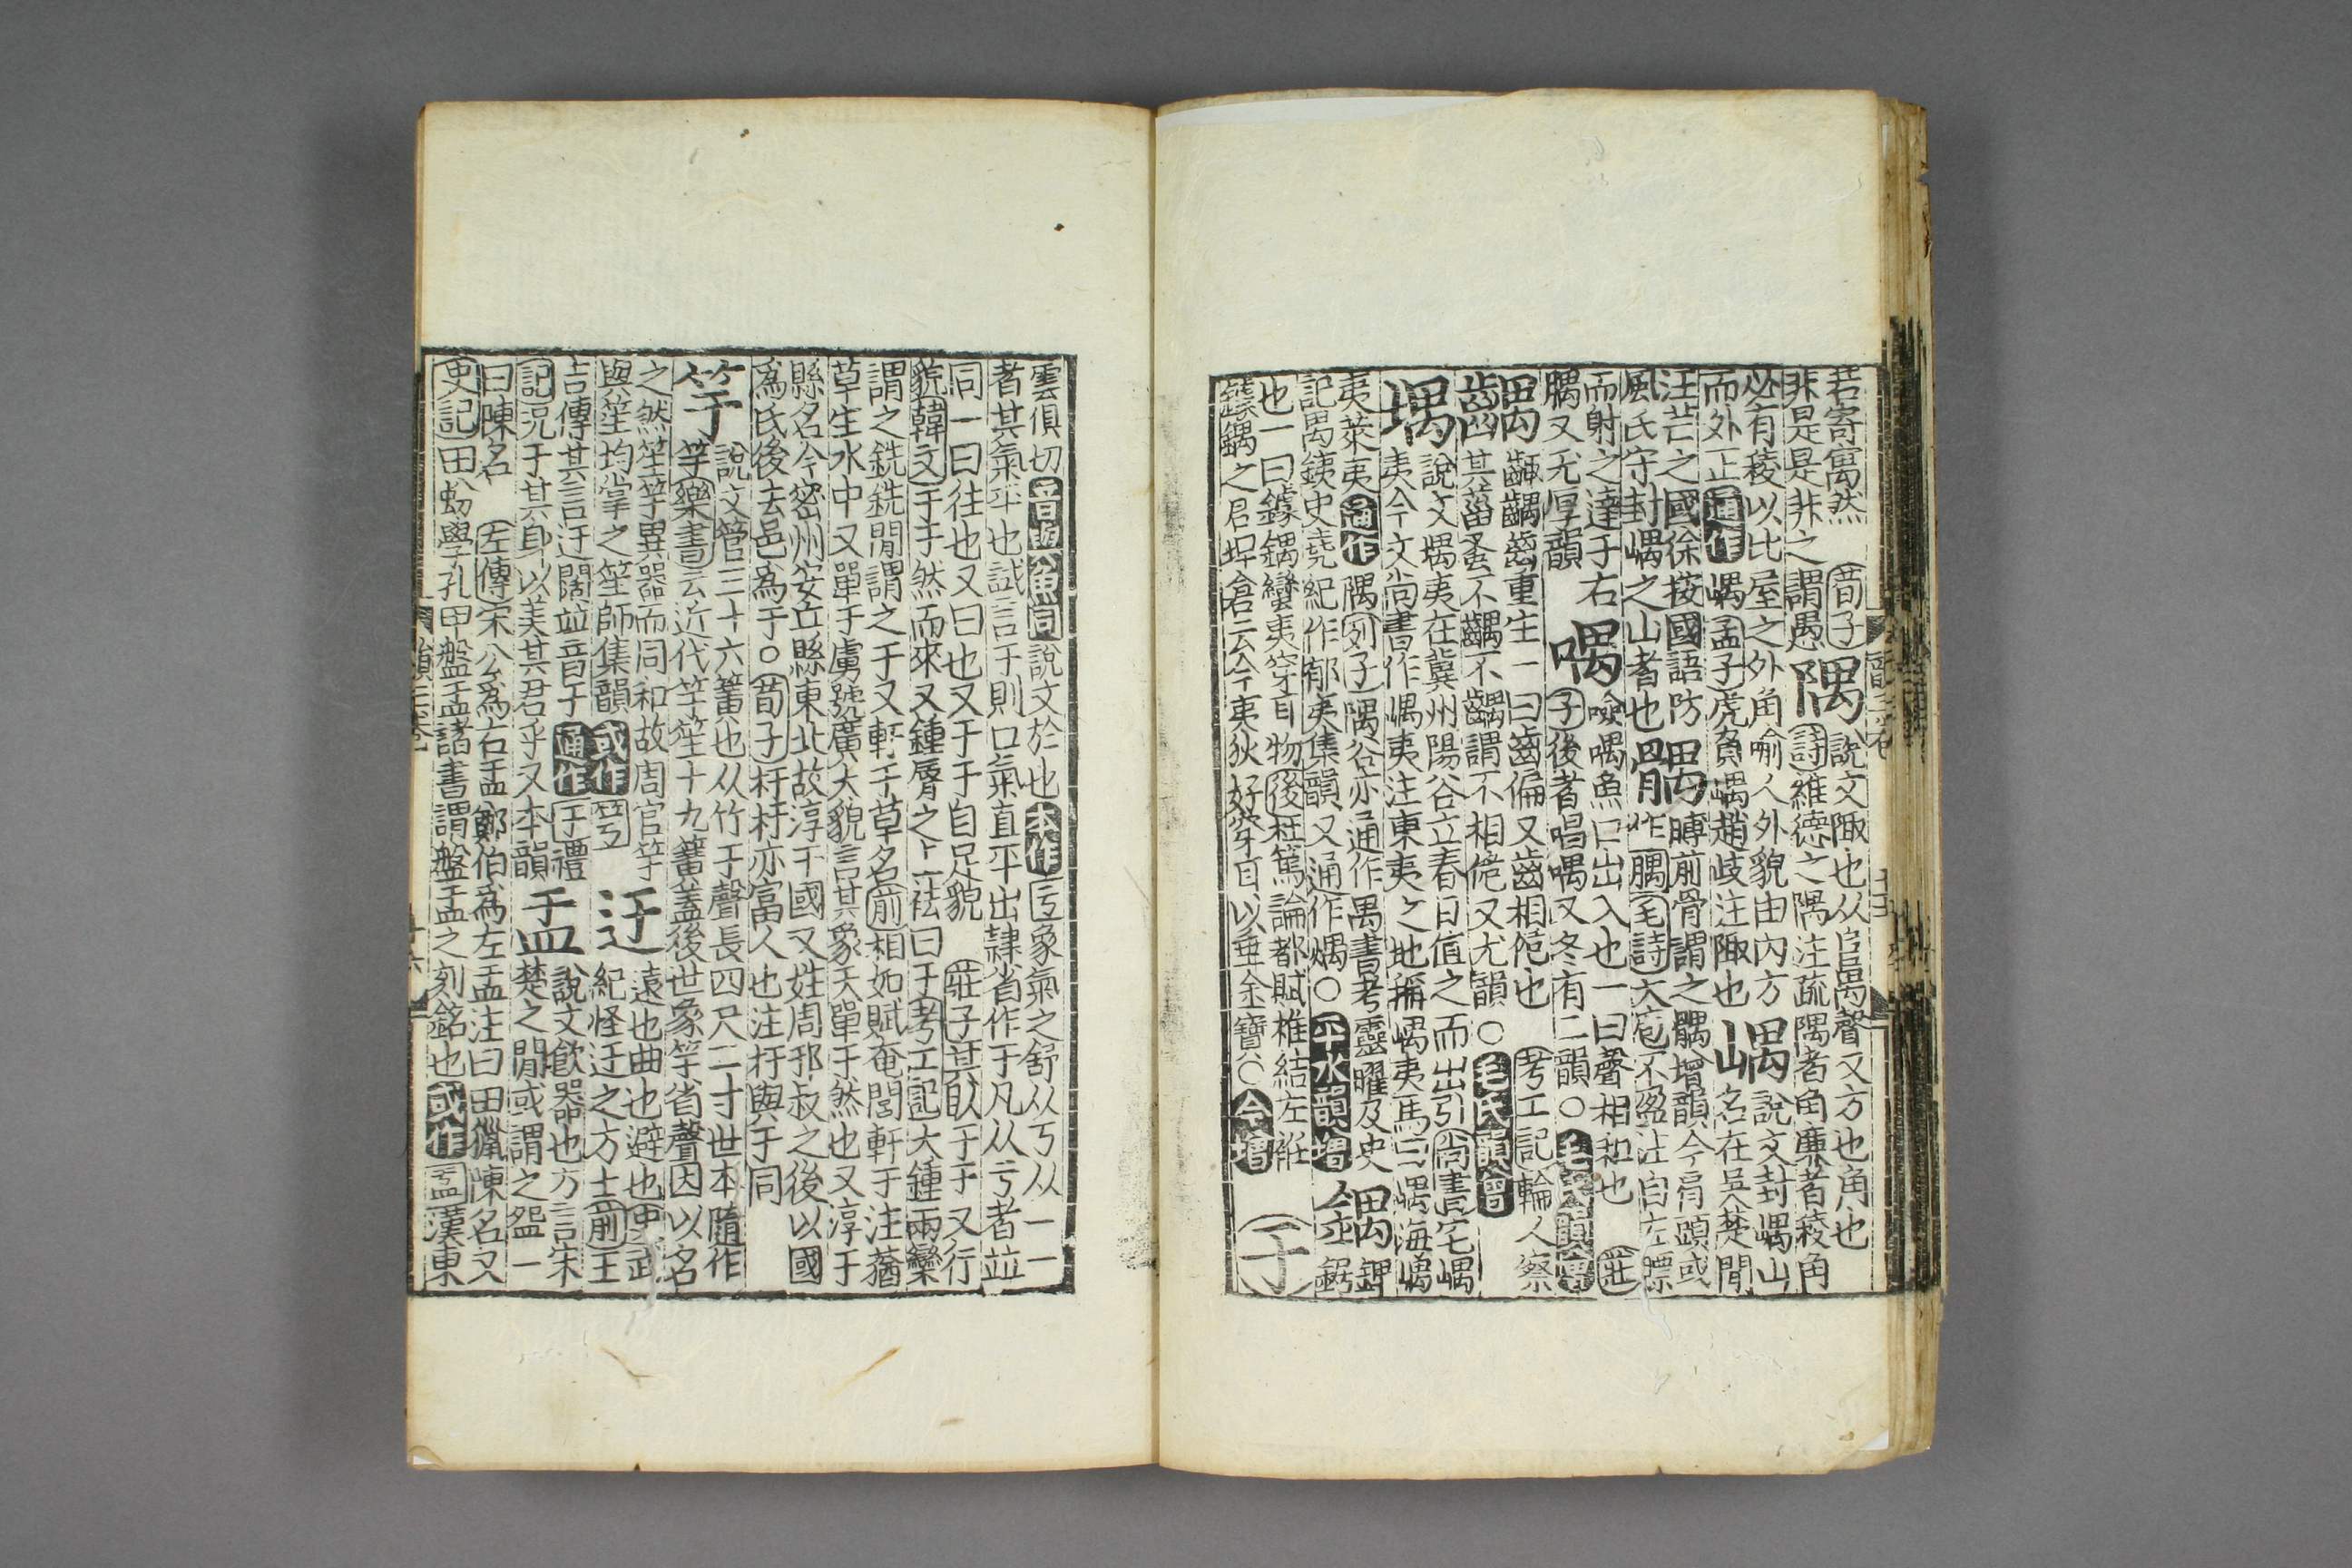 若寄寓然　荀子　說文陬也从𨸏禺聲又方也角也
非是是非之謂愚隅詩維德之隅注疏隅者角廉者稜角
必有稜以比屋之外角喻人外貌由內方　說文封嵎山
而外正通作嵎孟子虎負嵎趙歧注陬也嵎名在吳楚閒
汪芒之國徐按國語防　髆前骨謂之髃增韻今肩頭或
風氏守封嵎之山者也髃作腢毛詩大庖不盈注自左膘
而射之達于右　噞喁魚口出入也一曰聲相和也　莊
腢又尤厚韻喁子後者唱喁又冬有二韻○毛氏韻增
齵齱齵齒重生一曰齒偏又齒相佹也　考工記輪人察
其菑蚤不齵不齵謂不相佹又尤韻○毛氏韻增
堣說文堣夷在冀州陽谷立春日值之而出引尚書宅嵎
夷今文尚書作嵎夷注東夷之地稱嵎夷馬曰嵎海嵎
夷萊夷通作隅列子隅谷亦通作禺書考靈曜及史鍝鉀
記禺銕史堯紀作郁夷集韻又通作○平水韻增　鋸
也一曰鐻鍝蠻夷穿耳物後杜篤論都賦椎結左衽
鐻鍝之君埤倉云今夷狄好穿耳以垂金寶○今增　于
雲俱切音與魚同說文於也本作亐象氣之舒从丂从一一
者其氣平也試言于則口氣直平出隸省作于凡从亐者竝
同一曰往也又曰也又于于自足貌　莊子其臥于于又行
貌韓文于于然而來又鍾脣之上袪曰于考工記大鍾兩欒
謂之銑銑閒謂之于又軒于草名前相如賦奄閭軒于注蕕
草生水中又單于虜號廣大貌言其象天單于然也又淳于
縣名今密州安丘縣東北故淳于國又姓周邘叔之後以國
爲氏後去邑爲于○荀子杅杅亦富人也注杅與于同
竽說文管三十六簧也从竹于聲長四尺二寸世本隨作
竽樂書云近代竽笙十九簧蓋後世象竽省聲因以名
之然笙竽異器而同和故周官竽　遠也曲也避也史武
與笙均掌之笙師集韻或作䇡迂紀怪迂之方士前王
吉傳其言迂闊竝音于通作于禮　說文飮器也方言宋
記况于其身以美其君乎又本韻盂楚之閒或謂之盌一
曰陳名　左傳宋公爲右盂鄭伯爲左盂注曰田獵陳名又
史記田蚡學孔甲盤盂諸書謂盤盂之刻銘也或作漢東